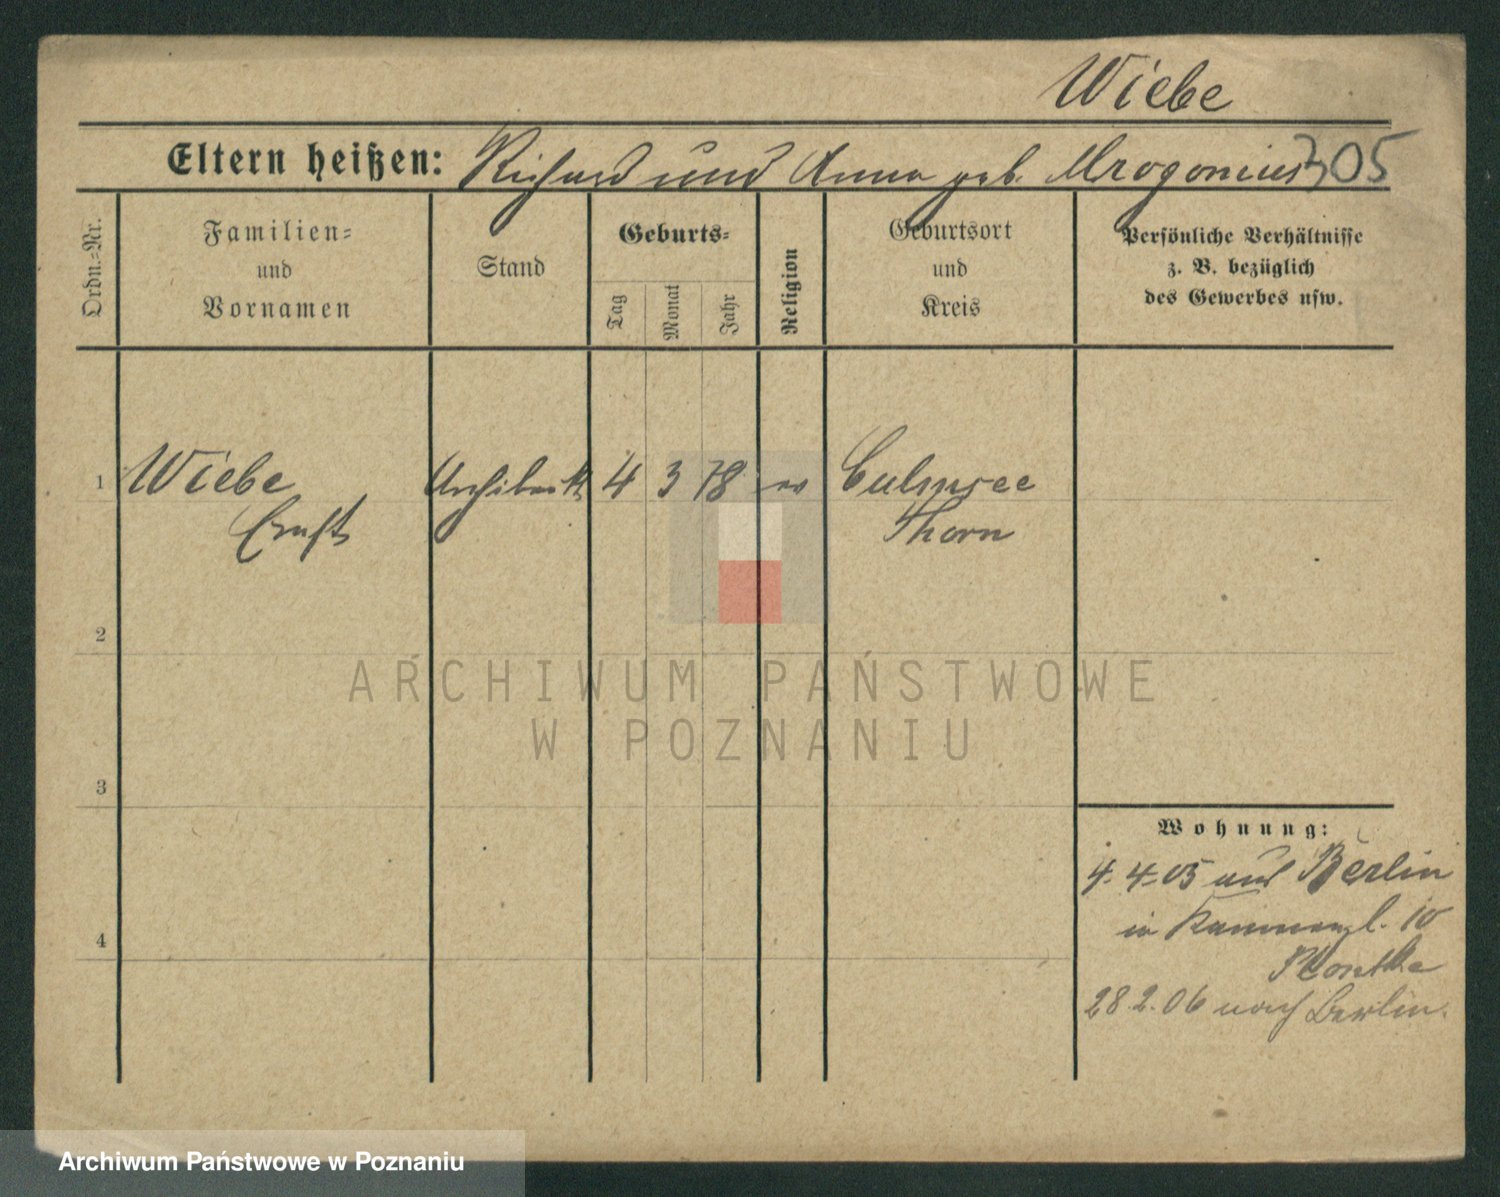 Wiebe
Eltern heißen: Richard und Anna geb. Mrogonius 305
Ordn.-Nr.
Familien- und Vornamen
Stand
Geburts-
Tag Monat Jahr
Religion
Geburtsort und Kreis
Persönliche Verhältnisse
z. B. bezüglich
des Gewerbes usw.
1 Wiebe Architekt 4 3 78 ev Culmsee
Ernst Thorn
2
3
4
Wohnung:
4. 4. 05 aus Berlin
in 10
28.2.06 nach Berlin.
ARCHIWUM PAŃSTWOWE
W POZNANIU
Archiwum Państwowe w Poznaniu